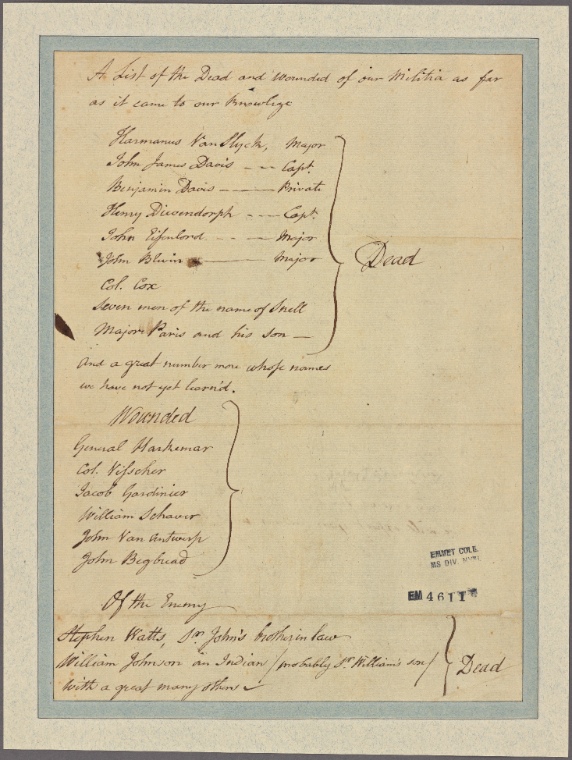 A List of the Dead and Wounded of our Militia as far
as it came to our Knowlege
Harmanus Van Slyck, Major
John James Davis - - - Capt.
Benjamin Davis - - - Private
Henry Diwendorph - - - Capt.
John Eisenlord - - - Major
John Bliven - - - Major
Col. Cox
Seven men of the name of Snell
Major Paris and his son —
Dead
And a great number more whose names
we have not yet learn'd.
Wounded
General Harkemar
Col. Visscher
Jacob Gardinier
William Schaver
John Van Antwerp
John Begbread
Of the Enemy
EMMET COLL.
MS DIV. NYPL
EM 4611
Stephen Watts, Sr. John's brother in law
William Johnson an Indian / probably Sr. William's son /
With a great many others
Dead